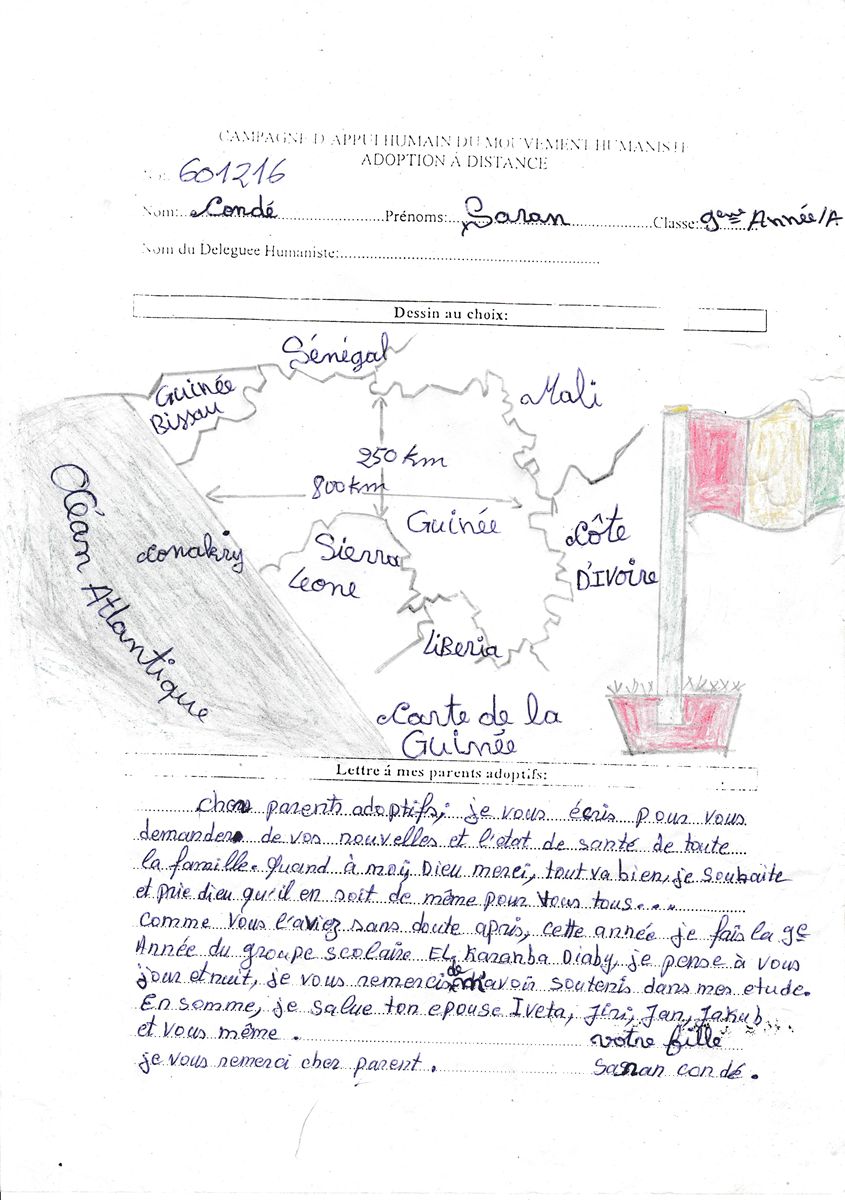 CAMPAGNE D'APPUI HUMAIN DU MOUVEMENT HUMANISTE
ADOPTION À DISTANCE
601216
Nom: Condé Prénoms: Saran Classe: 9eme Année/A
Nom du Deleguee Humaniste:
Dessin au choix:
Sénégal
Guinée
Bissau
Mali
250 km
800 km
Guinée
Côte
D'IVoire
Conakry
Sierra
Leone
Océan Atlantique
LiBeria
Carte de la
Guinée
Lettre á mes parents adoptifs:
cher parents adoptifs; je vous écris pour vous
demander de vos nouvelles et l'état de santé de toute
la famille. Quand à moi, Dieu merci, tout va bien, je souhaite
et prie dieu qu'il en soit de même pour vous tous...
comme vous l'aviez sans doute apris, cette année je fais la 9e
Année du groupe scolaire EL Karanba Diaby, je pense à vous
jour et nuit, je vous remercie de m'avoir soutenis dans mes etude.
En somme, je salue ton epouse Iveta, Jiri, Jan, Jakub
et vous même. votre fille
je vous remerci cher parent. Saran condé.